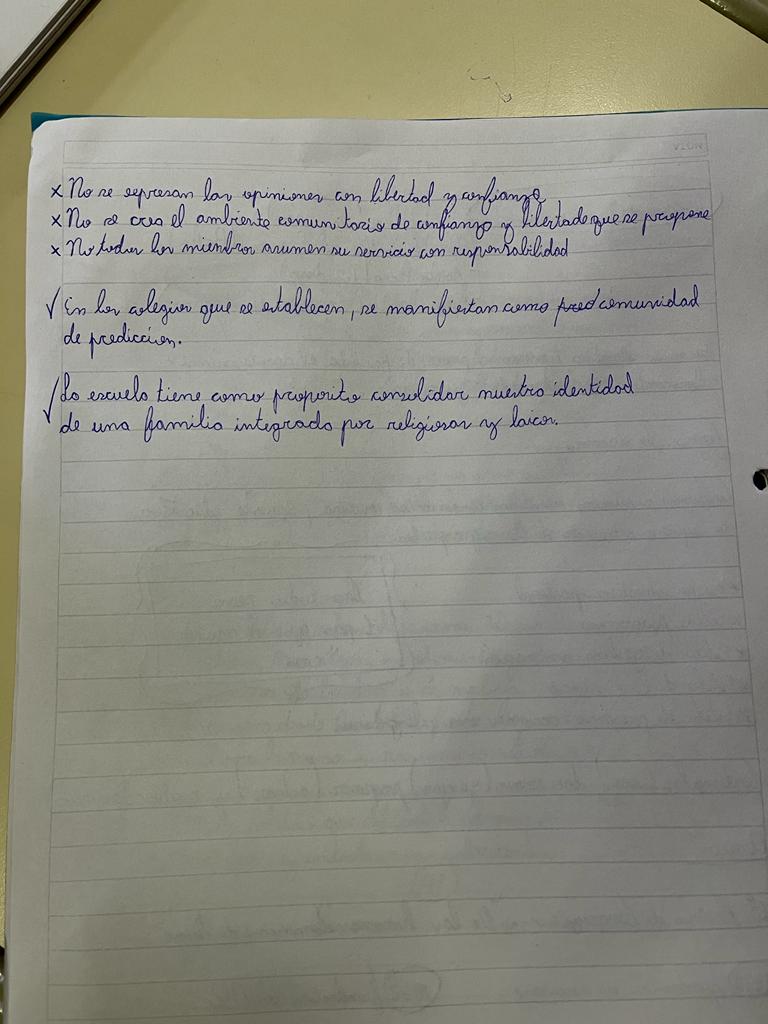 x No se expresan las opiniones con libertad y confianza
x No se crea el ambiente comunitario de confianza y libertad que se propone
x No todos los miembros asumen su servicio con responsabilidad
✓ En los colegios que se establecen, se manifiestan como pred comunidad
de prediccion.
✓ La escuela tiene como proposito consolidar nuestra identidad
de una familia integrada por religiosas y laicos.